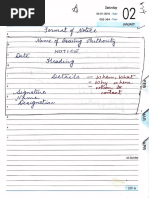 Saturday
02
JANUARY
Format of Notice
Name of Issuing Authority
NOTICE
Date
Heading
Details - When, What
- Why, where
whom to
contact
Signature
Name
Designation